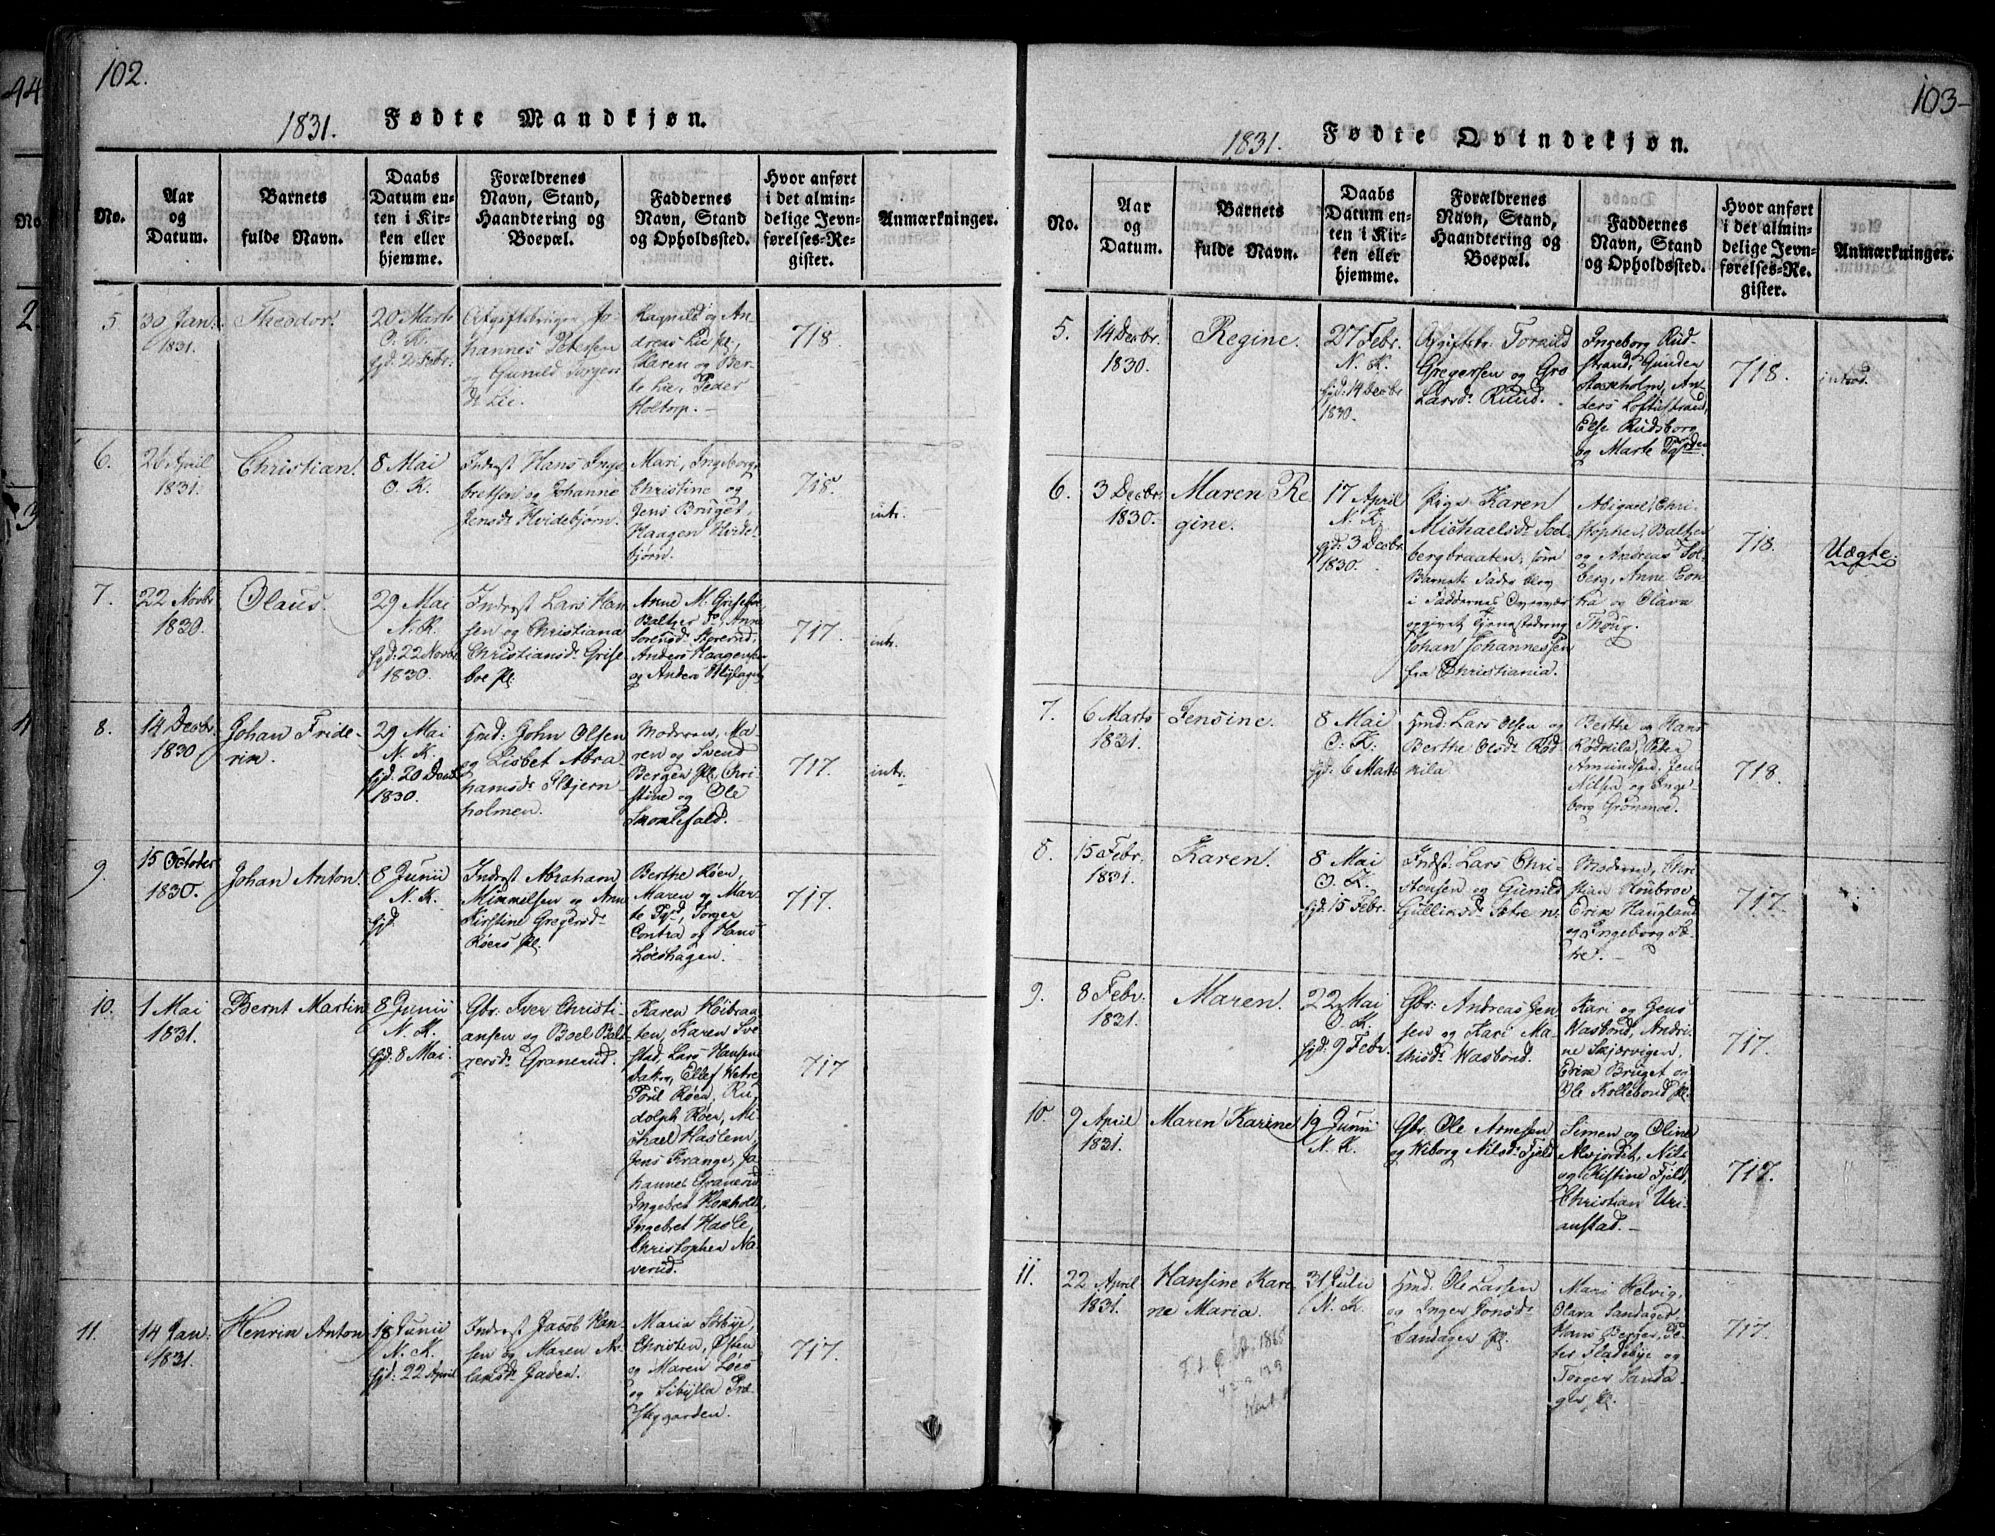 102.
1831. Fødte Mandkjøn.
No.
Aar
og
Datum.
Barnets
fulde Navn.
Daabs
Datum en-
ten i Kir-
ken eller
hjemme.
Forældrenes
Navn, Stand,
Haandtering og
Boepæl.
Faddernes
Navn, Stand
og Opholdssted.
Hvor anført
i det almin-
delige Jevn-
førelses-Re-
gister.
Anmærkninger.
5
30 Jan.
1831.
Theodor.
20 Marts
O. K.
hjd. 2 Febr.
Afgiftsbruger Jo-
hannes Petersen
og Gunild Torger
dr Lie.
Ragnild og An-
dreas Lie pl.,
Karen og Ber-
te Lie, Peder
Holtorp. –
718.
6.
26 April
1831.
Christian.
8 Mai
O. K.
Inderst Hans Inge-
bretsen og Johanne
Jensdr Hvidebjørn.
Mari, Ingeborg,
Christine og
Jens Bruget,
Haagen Hvide-
bjørn.
718.
intr.
7.
22 Novbr
1830.
Olaus.
29 Mai
N. K.
hjd: 22 Novbr
1830.
Inderst Lars Han-
sen og Christiana
Christiansdr Grise-
boe pl.
Anne M. Grisebo,
Baltzer
Anders Haagens
og Anders
717.
intr.
8.
14 Decbr.
1830
Johan Fride-
rik.
29 Mai
N. K.
hjd: 20 Decbr
1830.
Hmd: John Olsen
og Lisbet Abra-
hamsdr Stjern-
holmen.
Moderen, Ma-
ren og Svend
Bergen pl., Chri-
stine og Ole
Smalefald.
717.
intr.
9.
15 October
1830.
Johan Anton.
8 Junii
N. K.
hjd.
Inderst Abraham
Mimmelsen og Ann
Kirstine Gregersdr
Røers pl.
Berthe Røen,
Maren og Mar-
te Torger
Contra og Hans
Løeshagen.
717.
10.
1 Mai
1831.
Bernt Martin
8 Junii
N. K.
hjd: 8 Mai.
Gbr. Iver Christi-
ansen og Boel Bal-
zersdr Granerud.
Karen Høibraa-
ten, Karen Sve-
stad, Lars Hansen
Dakes, Ellef Wetre
Toril Røen, Ru-
dolph Røer, Mi-
chael Haslem,
Jens Krange, Jo-
hannes Granerud,
Ingebret Roxholt,
Ingebret Hasle,
Christopher Na-
verud.
717
11.
14 Jan.
1831.
Henrik Anton
18 Junii
N. K.
hjd: 22 April
Inderst Jacob Han-
sen og Maren As-
laksdr Jaden.
Maria Sobye,
Christen, Østen
og Maren Løes
og Sibylla Præ-
styggarden.
717.
103
1831. Fødte Qvindekjøn.
No.
Aar
og
Datum.
Barnets
fulde Navn.
Daabs
Datum en-
ten i Kir-
ken eller
hjemme.
Forældrenes
Navn, Stand,
Haandtering og
Boepæl.
Faddernes
Navn, Stand
og Opholdssted.
Hvor anført
i det almin-
delige Jevn-
førelses-Re-
gister.
Anmærkninger.
5.
14 Decbr.
1830.
Regine.
27 Febr.
N. K.
hjd: 14 Decbr
1830.
Afgiftsbr. Torkild
Gregersen og Gro
Larsdr Ruud.
Ingeborg Rud-
strand, Gunder
Roxholm, An-
ders Loftustrand,
Else Rudsborg
og Marte
718.
introd.
6.
3 Decbr.
1830.
Maren Re
gine.
17 April
N. K.
hjd: 3 Decbr.
1830.
Pige Karen
Michaelsdr Sol-
bergbraaten, som
Barnets Fader blev
i Faddernes Overvær
opgivet Tjenestedreng
Johan Johannessen
fra Christiania.
Abigael, Chri-
stopher, Baltzer
og Andreas Sol-
berg, Anne Con-
tra og Olava
Thorig.
718.
Uægte.
7.
6 Marts
1831.
Jensine.
8 Mai
O. K.
hjd: 6 Marts
Hmd: Lars Olsen og
Berthe Olsdr Rød-
kila
Berthe og Hans
Rødkila, Peter
Amundsen, Jens
Nilsen og Inge-
borg Grønmoe.
718.
8.
15 Febr.
1831.
Karen.
8 Mai
O. K.
hjd: 15 Febr.
Indst: Lars Chri-
stensen og Gunild
Gulliksdr Sætre n.
Moderen, Chri-
stian Houbroe,
Erik Haugland
og Ingeborg Sæ-
tre. –
717.
9.
8 Febr.
1831.
Maren.
22 Mai
O. K.
hjd: 9 Febr.
Gbr: Andreas Jen
sen og Kari Ma-
thisdr Wasbond.
Kari og Jens
Wasbond, Andri-
ne Skjærvigen,
Erik Bruget og
Ole Kollebond pl.
717.
10.
9 April
1831.
Maren Karine
19 Junii
N. K.
Gbr. Ole Arnesen
og Wiborg Nilsdr Fjeld
Simen og Oline
Alvjordet, Nils
og Kistine Fjeld,
Christian Uri-
anstad. –
717.
11.
22 April
1831.
Hansine Kare
ne Maria.
31 Julii
N. K.
Hmd. Ole Larsen
og Inger Jonsdr
Sandager pl.
Mari Helvig,
Olara Sandager
Hans Berger, Pe-
ter Fladebye og
Torger Sanda-
ger pl.
717.
1865